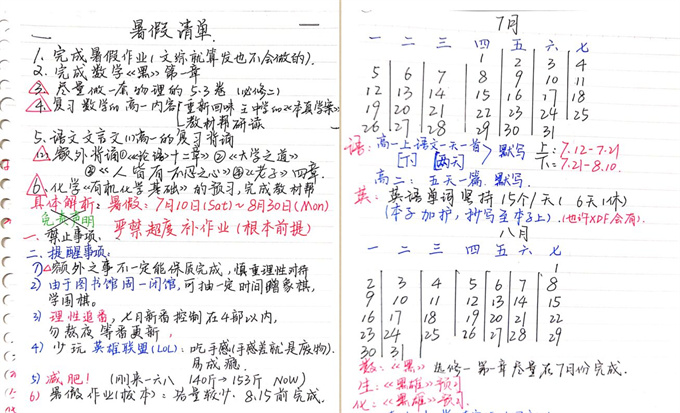 暑假清单
1. 完成暑假作业(文综就算发也不会做的).
2. 完成数学《黑》第一章
③ 尽量做一套物理的 5·3卷(必修二)
④ 复习数学的高一内容 重新回味王中学的《本真学案》
教材帮研读
5. 语文文言文 高一的复习背诵
额外背诵①《论语十二章》②《大学之道》
③《人皆有不忍之心》④《老子》四章.
⑥ 化学《有机化学基础》的预习,完成教材帮
具体解析:暑假:7月10日(Sat)~8月30日(Mon)
免责声明
严禁超度补作业(根本前提)
一. 禁止事项:
二. 提醒事项:
1) 额外之事不一定能保质完成,慎重理性对待
2) 由于图书馆周一闭馆,可抽一定时间 象棋,
学围棋.
3) 理性追番,七月新番控制在4部以内,
勿熬夜等番更新
4) 少玩英雄联盟(LOL):吃手感(手感差就是废物).
易成瘾.
5) 减肥! (刚来一六八 140斤→153斤 NOW)
6) 暑假作业(版本):培量较少. 8.15前完成.
7月
一 二 三 四 五 六 七
1 2 3 4
5 6 7 8 9 10 11
12 13 14 15 16 17 18
19 20 21 22 23 24 25
26 27 28 29 30 31
语:高一上语文一天一首 默写 上:7.12-7.21
[下] [两天] 下:7.21-8.10.
高二:五天一篇.默写.
英:英语单词坚持15个/天(6天1休)
(本子加护,抄写至本子上).(也许XDF会有).
八月
一 二 三 四 五 六 七
1
2 3 4 5 6 7 8
9 10 11 12 13 14 15
16 17 18 19 20 21 22
23 24 25 26 27 28 29
30 31
数:《黑》选修一第一章尽量在7月份完成.
生:《黑雄》预习
化:《黑雄》预习.